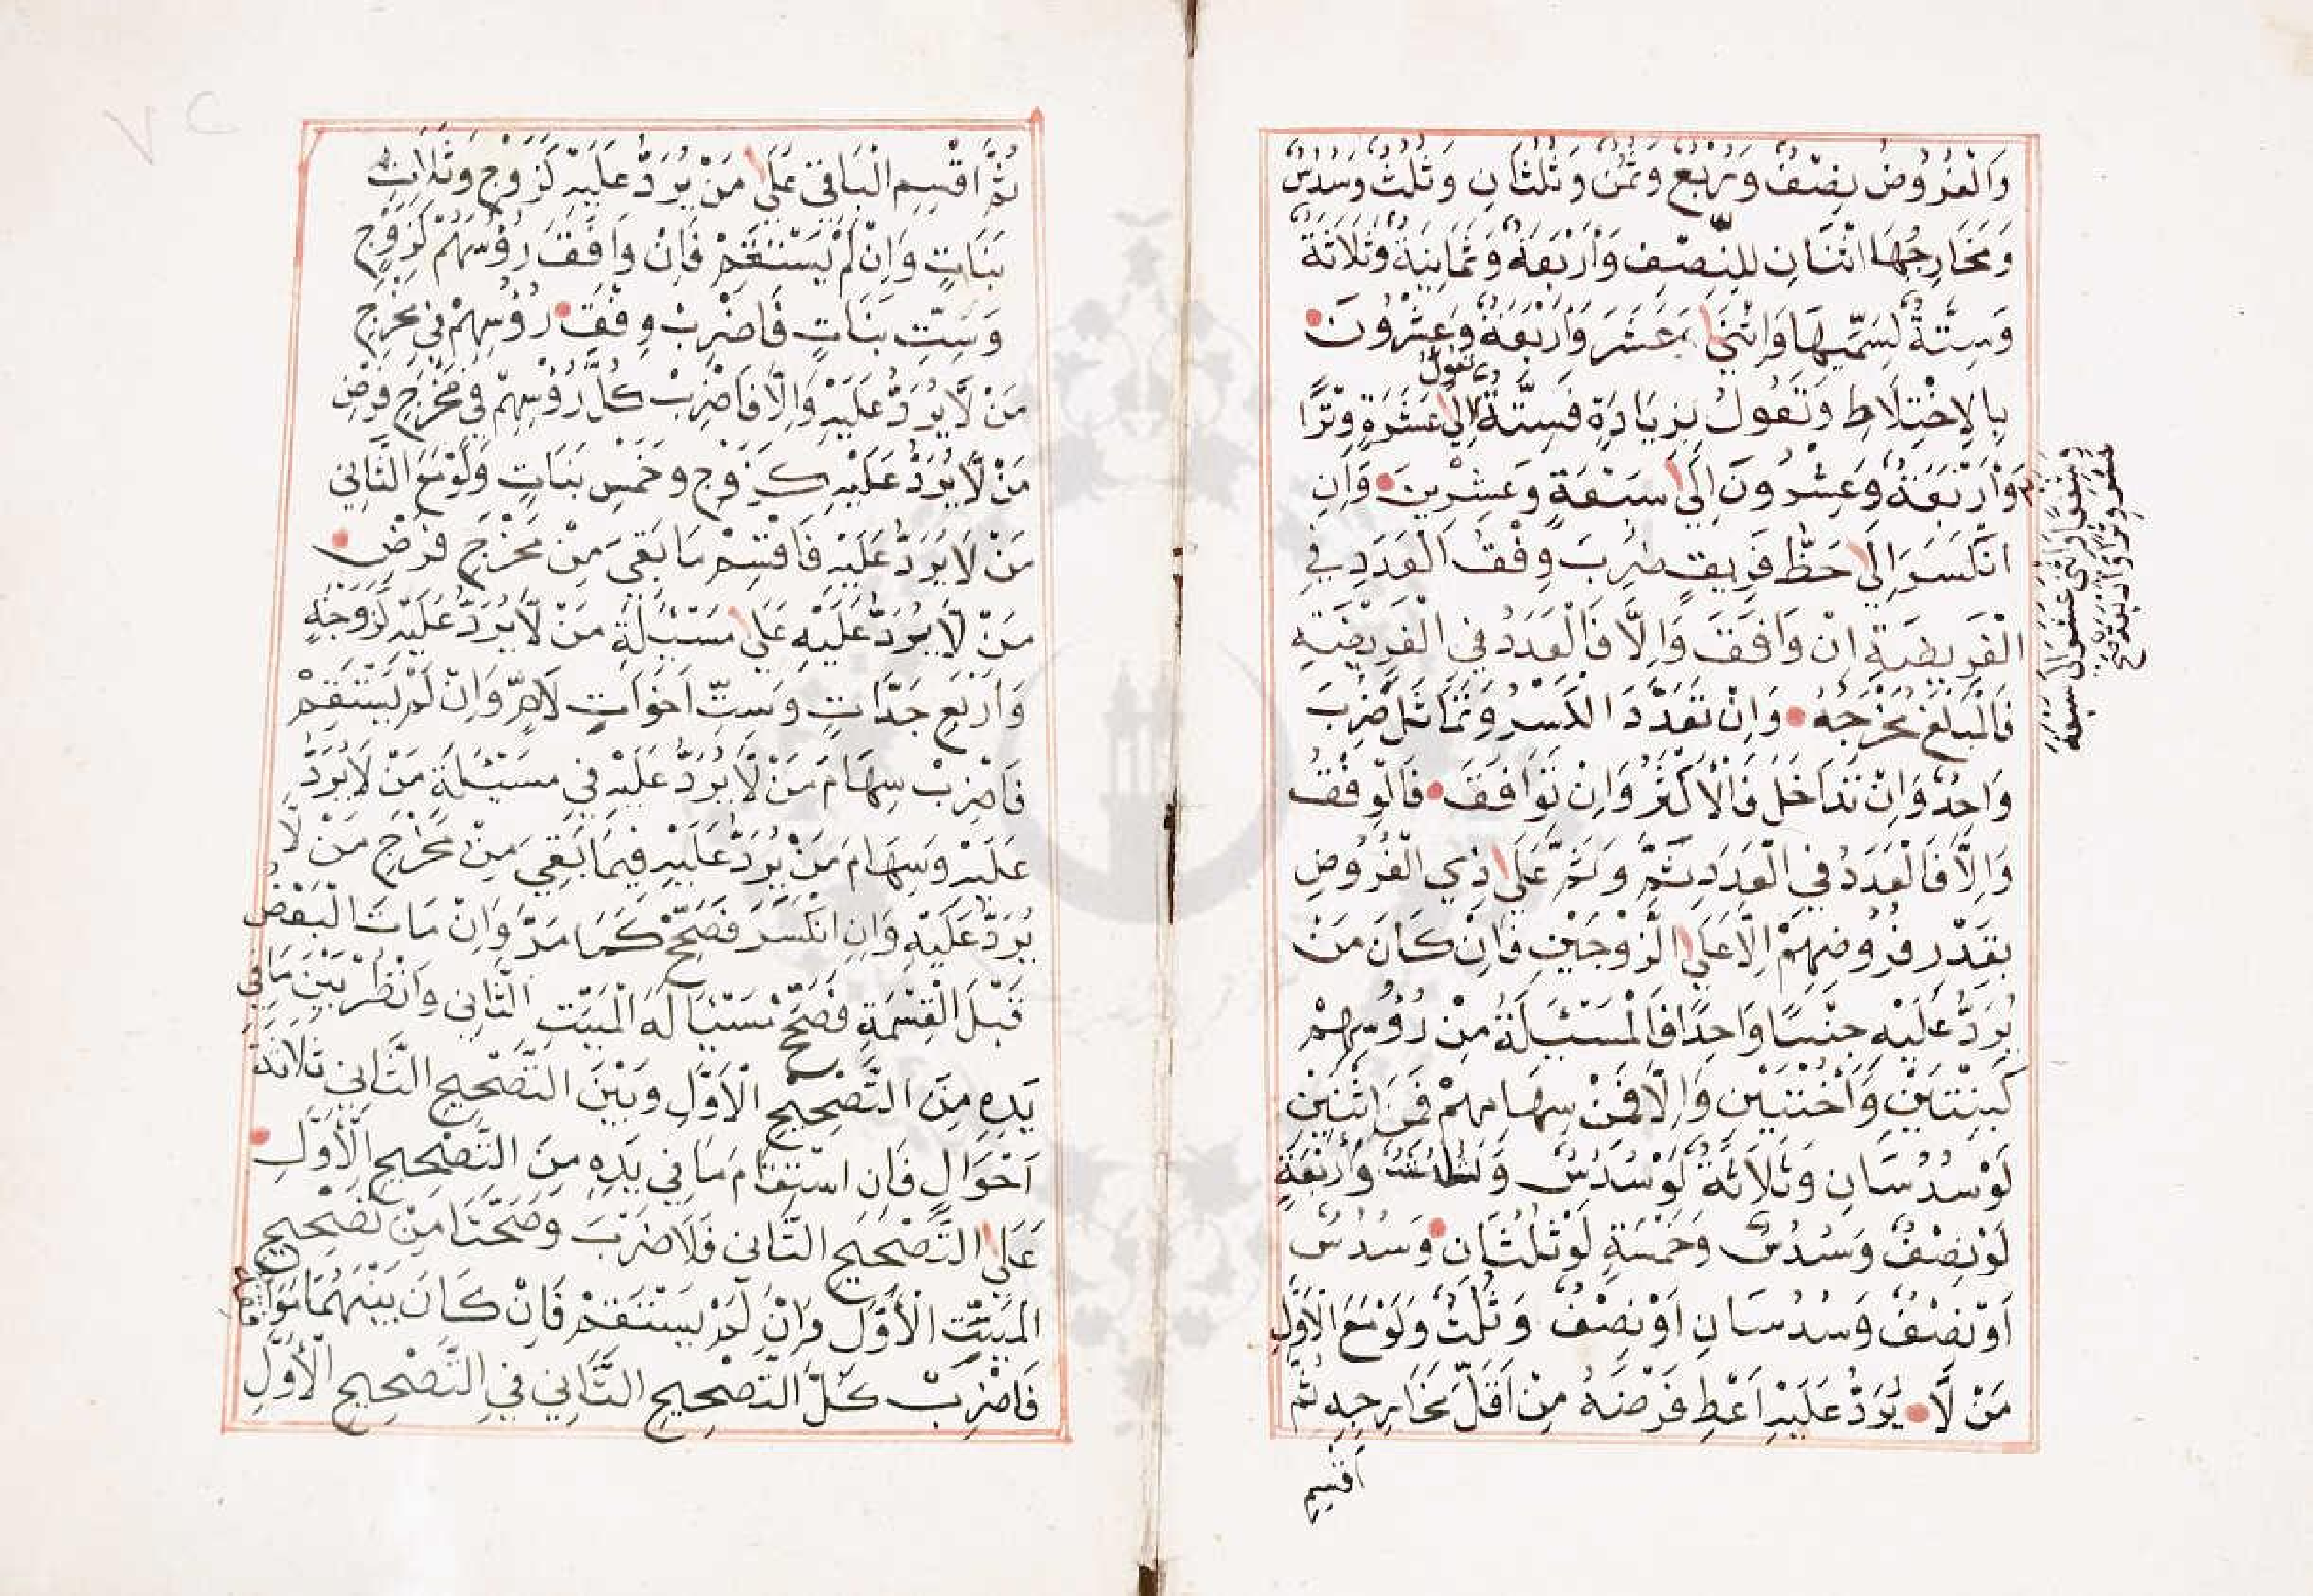 وَالْفُرُوضُ نِصْفٌ وَرُبْعٌ وَثُمْنٌ وَثُلُثَانِ وَثُلُثٌ وَسُدُسٌ
وَمَخَارِجُهَا اثْنَانِ لِلنِّصْفِ وَأَرْبَعَةٌ وَثَمَانِيَةٌ وَثَلَاثَةٌ
وَسِتَّةٌ لِسَمِيِّهَا وَاِثْنَى عَشَرَ وَأَرْبَعَةٌ وَعِشْرُونَ
بِالِاخْتِلَاطِ وَتَعُولُ بِزِيَادَةٍ فَسِتَّةٌ تعول اِلَى عَشَرَةٍ وِتْرًا
وَشَفْعًا وَاثْنَى عَشَرَ اِلَى سَبْعَةَ
عَشَرَ وِتْرًا وَاَرْبَعَة صح
وَأَرْبَعَةٌ وَعِشْرُونَ اِلَى سَبْعَةٍ وَعِشْرِينَ وَاِنِ
انْكَسَرَ اِلَى حَظُّ فَرِيقٍ ضُرِبَ وِفْقُ الْعَدَدِ فِي
الْفَرِيضَةِ اِنْ وَافَقَ وَاِلَّا فَالْعَدَدُ فِي الْفَرِيضَةِ
فَالْمَبْلَغُ مَخْرَجُهُ وَاِنْ تَعَدَّدَ الْكَسْرُ وَتَمَاثَلَ ضُرِبَ
وَاحِدٌ وَاِنْ تَدَاخَلَ فَالْأَكْثَرُ وَاِنْ تَوَافَقَ فَالْوِفْقُ
وَاِلَّا فَالْعَدَدُ فِي الْعَدَدِ ثُمَّ وَثُمَّ عَلَى ذِي الْفُرُوضِ
بِقَدْرِ فُرُوضِهِمْ اِلَّا عَلَى الزَّوْجَيْنِ فَاِنْ كَانَ مَنْ
يُرَدُّ عَلَيْهِ جِنْسًا وَاحِدًا فَالْمَسْئَلَةُ مِنْ رُؤُسِهِمْ
كَبِنْتَيْنِ وَأُخْتَيْنِ وَاِلَّا فَمِنْ سِهَامِهِمْ فَمِنِ اثْنَيْنِ
لَوْ سُدُسَانِ وَثَلَاثَةٌ لَوْ سُدُسٌ وَثُلُثٌ وَأَرْبَعَةٍ
لَوْ نِصْفٌ وَسُدُسٌ وَخَمْسَةٍ لَوْ ثُلُثَانِ وَسُدُسٌ
اَوْ نِصْفٌ وَسُدُسَانِ اَوْ نِصْفٌ وَثُلُثٌ وَلَوْ مَعَ الْاَوَّلِ
مَنْ لَّا يُرَدُّ عَلَيْهِ اَعْطِ فَرْضَهُ مِنْ اَقَلِّ مَخَارِجِهِ ثُمَّ
اَقْسِمِ
ثُمَّ اقْسِمِ الْبَاقِيَ عَلَى مَنْ يُرَدُّ عَلَيْهِ كَزَوْجٍ وَثَلَاثِ
بَنَاتٍ وَاِنْ لَمْ يَسْتَقِمْ فَاِنْ وَافَقَ رُؤُسَهُمْ كَزَوْجٍ
وَسِتِّ بَنَاتٍ فَاضْرِبْ وِفْقَ رُؤُسِهِمْ فِي مَخْرَجِ
مَنْ لَّا يُرَدُّ عَلَيْهِ وَاِلَّا فَاضْرِبْ كُلَّ رُؤُسِهِمْ فِي مَخْرَجِ فَرْضِ
مَنْ لَّا يُرَدُّ عَلَيْهِ كَزَوْجٍ وَخَمْسِ بَنَاتٍ وَلَوْ مَعَ الثَّانِي
مَنْ لَا يُرَدُّ عَلَيْهِ فَاقْسِمْ مَا بَقِيَ مِنْ مَخْرَجِ فَرْضِ
مَنْ لَّا يُرَدُّ عَلَيْهِ عَلَى مَسْئَلَةِ مَنْ لَّا يُرَدُّ عَلَيْهِ كَزَوْجَةٍ
وَاَرْبَعِ جَدَّاتٍ وَسِتِّ اَخَوَاتٍ لَاُمٍّ وَاِنْ لَمْ يَسْتَقِمْ
فَاضْرِبْ سِهَامَ مَنْ لَّا يُرَدُّ عَلَيْهِ فِي مَسْئَلَةِ مَنْ لَا يُرَدُّ
عَلَيْهِ وَسِهَامَ مَنْ يُرَدُّ عَلَيْهِ فِيمَا بَقِيَ مِنْ مَخْرَجِ مَنْ لَّا
يُرَدُّ عَلَيْهِ وَاِنِ انْكَسَرَ فَصَحِّحْ كَمَا مَرَّ وَاِنْ مَاتَ الْبَعْضُ
قَبْلَ الْقِسْمَةِ فَصَحِّحْ مَسْئَلَةَ الْمَيِّتِ الثَّانِي وَانْظُرْ بَيْنَ مَا فِي
يَدِهِ مِنَ التَّصْحِيحِ الْاَوَّلِ وَبَيْنَ التَّصْحِيحِ الثَّانِي ثَلَاثَةَ
اَحْوَالٍ فَاِنِ اسْتَقَامَ مَا فِي يَدِهِ مِنَ التَّصْحِيحِ الْأَوَّلِ
عَلَى التَّصْحِيحِ الثَّانِي فَلَا ضَرْبَ وَصَحَّتَا مِنْ تَصْحِيحِ
الْمَيِّتِ الْأَوَّلِ وَاِنْ لَمْ يَسْتَقِمْ فَاِنْ كَانَ بَيْنَهُمَا مُوَافَقَةٌ
فَاضْرِبْ كُلَّ التَّصْحِيحِ الثَّانِي فِي التَّصْحِيحِ الْأَوَّلِ